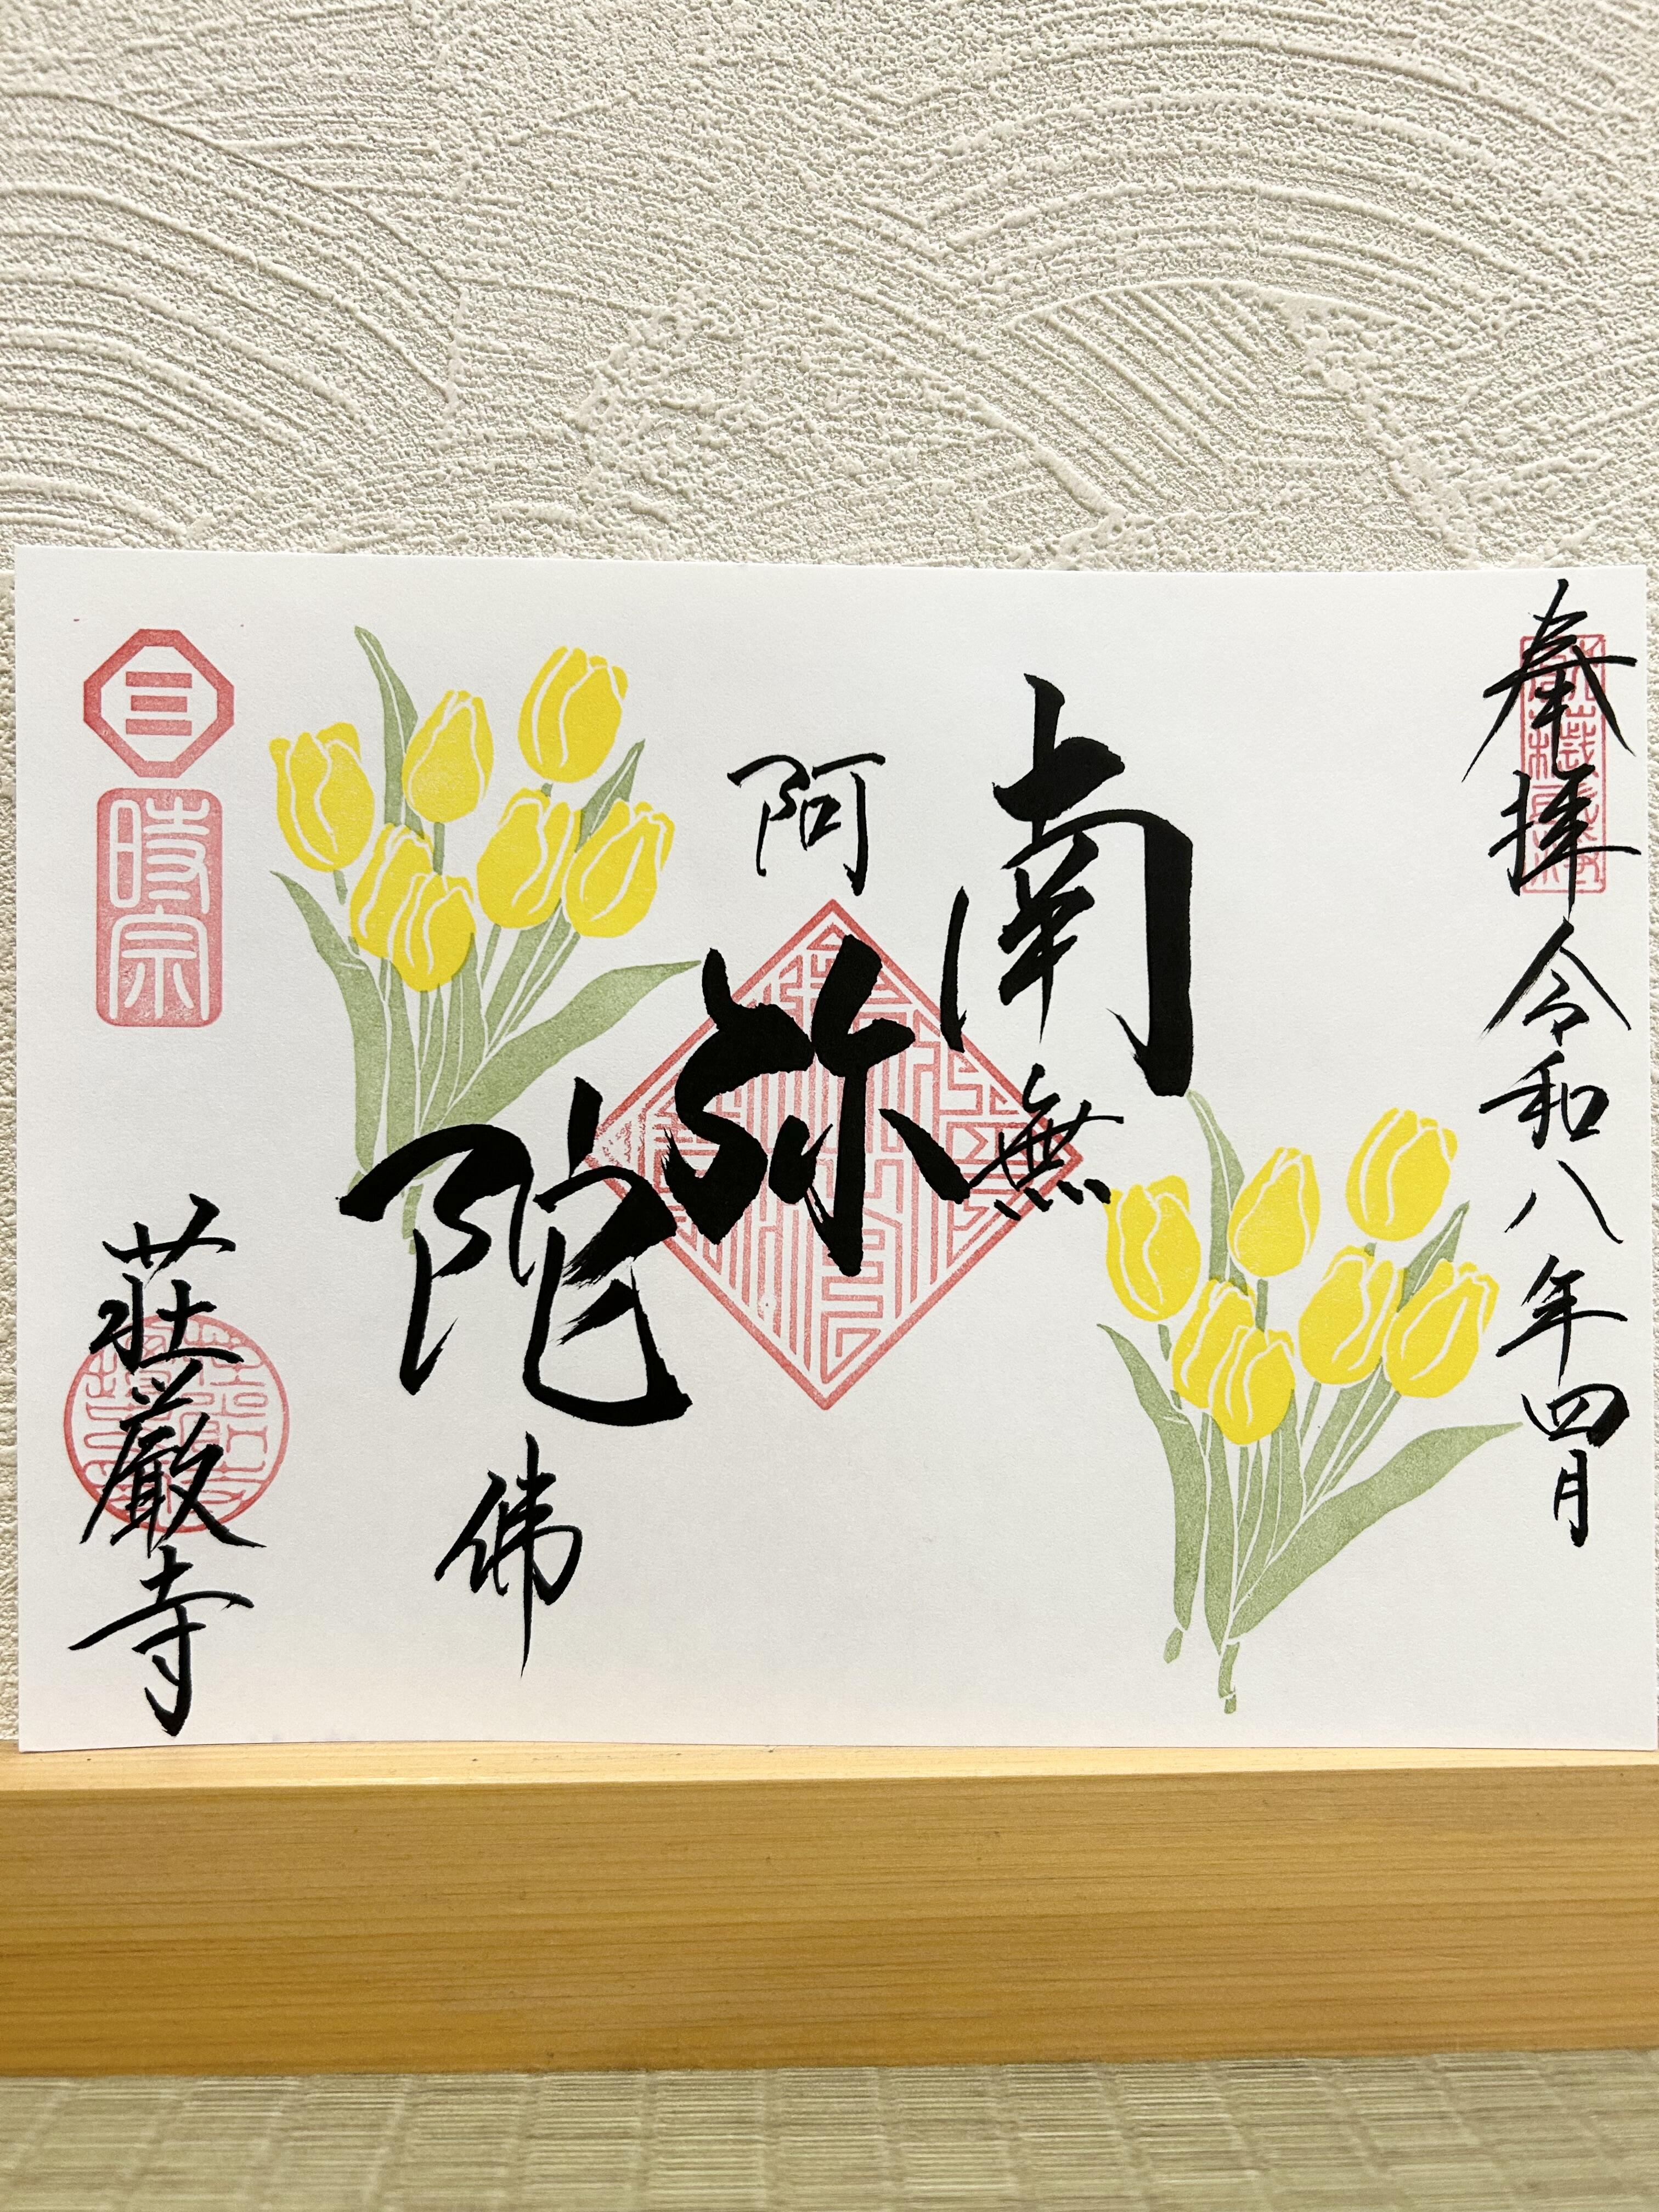 奉拝 令和八年四月
南無
阿弥陀佛
時宗
荘厳寺